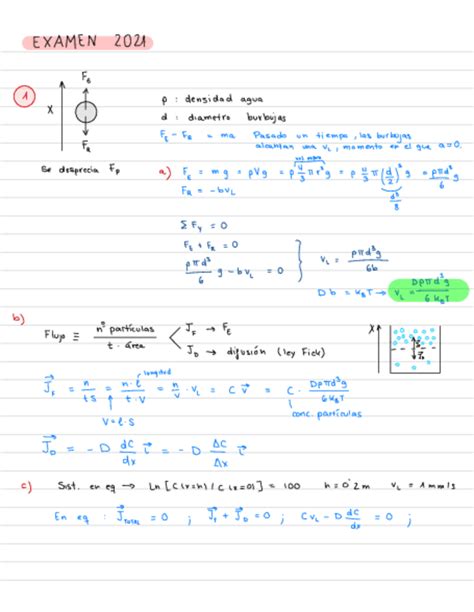 EXAMEN 2021
1
F_E
x
F_R
ρ : densidad agua
d : diametro burbujas
F_E - F_R = ma Pasado un tiempo, las burbujas
alcantan una v_L, momento en el que a=0.
Se desprecia F_p
vol esfera
a) F_E = mg = ρVg = ρ 4/3 π r³ g = ρ 4/3 π (d/2)³ g = ρπd³g/6
F_R = -bv_L
d³/8
ΣF_y = 0
F_E + F_R = 0
ρπd³/6 g - bv_L = 0
v_L = ρπd³g/6b
Db = k_BT → v_L = Dρπd³g/6k_BT
b)
Flujo ≡ nº partículas / t · área
J_F → F_E
J_D → difusión (ley Fick)
x
longitud
J_F = n/tS = n·l/t·V = n/V · v_L = C v = C · Dρπd³g/6k_BT
V = l·S
conc. partículas
J_D = -D dC/dx i = -D ΔC/Δx i
c) Sist. en eq → Ln [C(x=h) / C(x=0)] = 100 h = 0'2m v_L = 1mm/s
En eq : J_TOTAL = 0 ; J_F + J_D = 0 ; Cv_L - D dC/dx = 0 ;